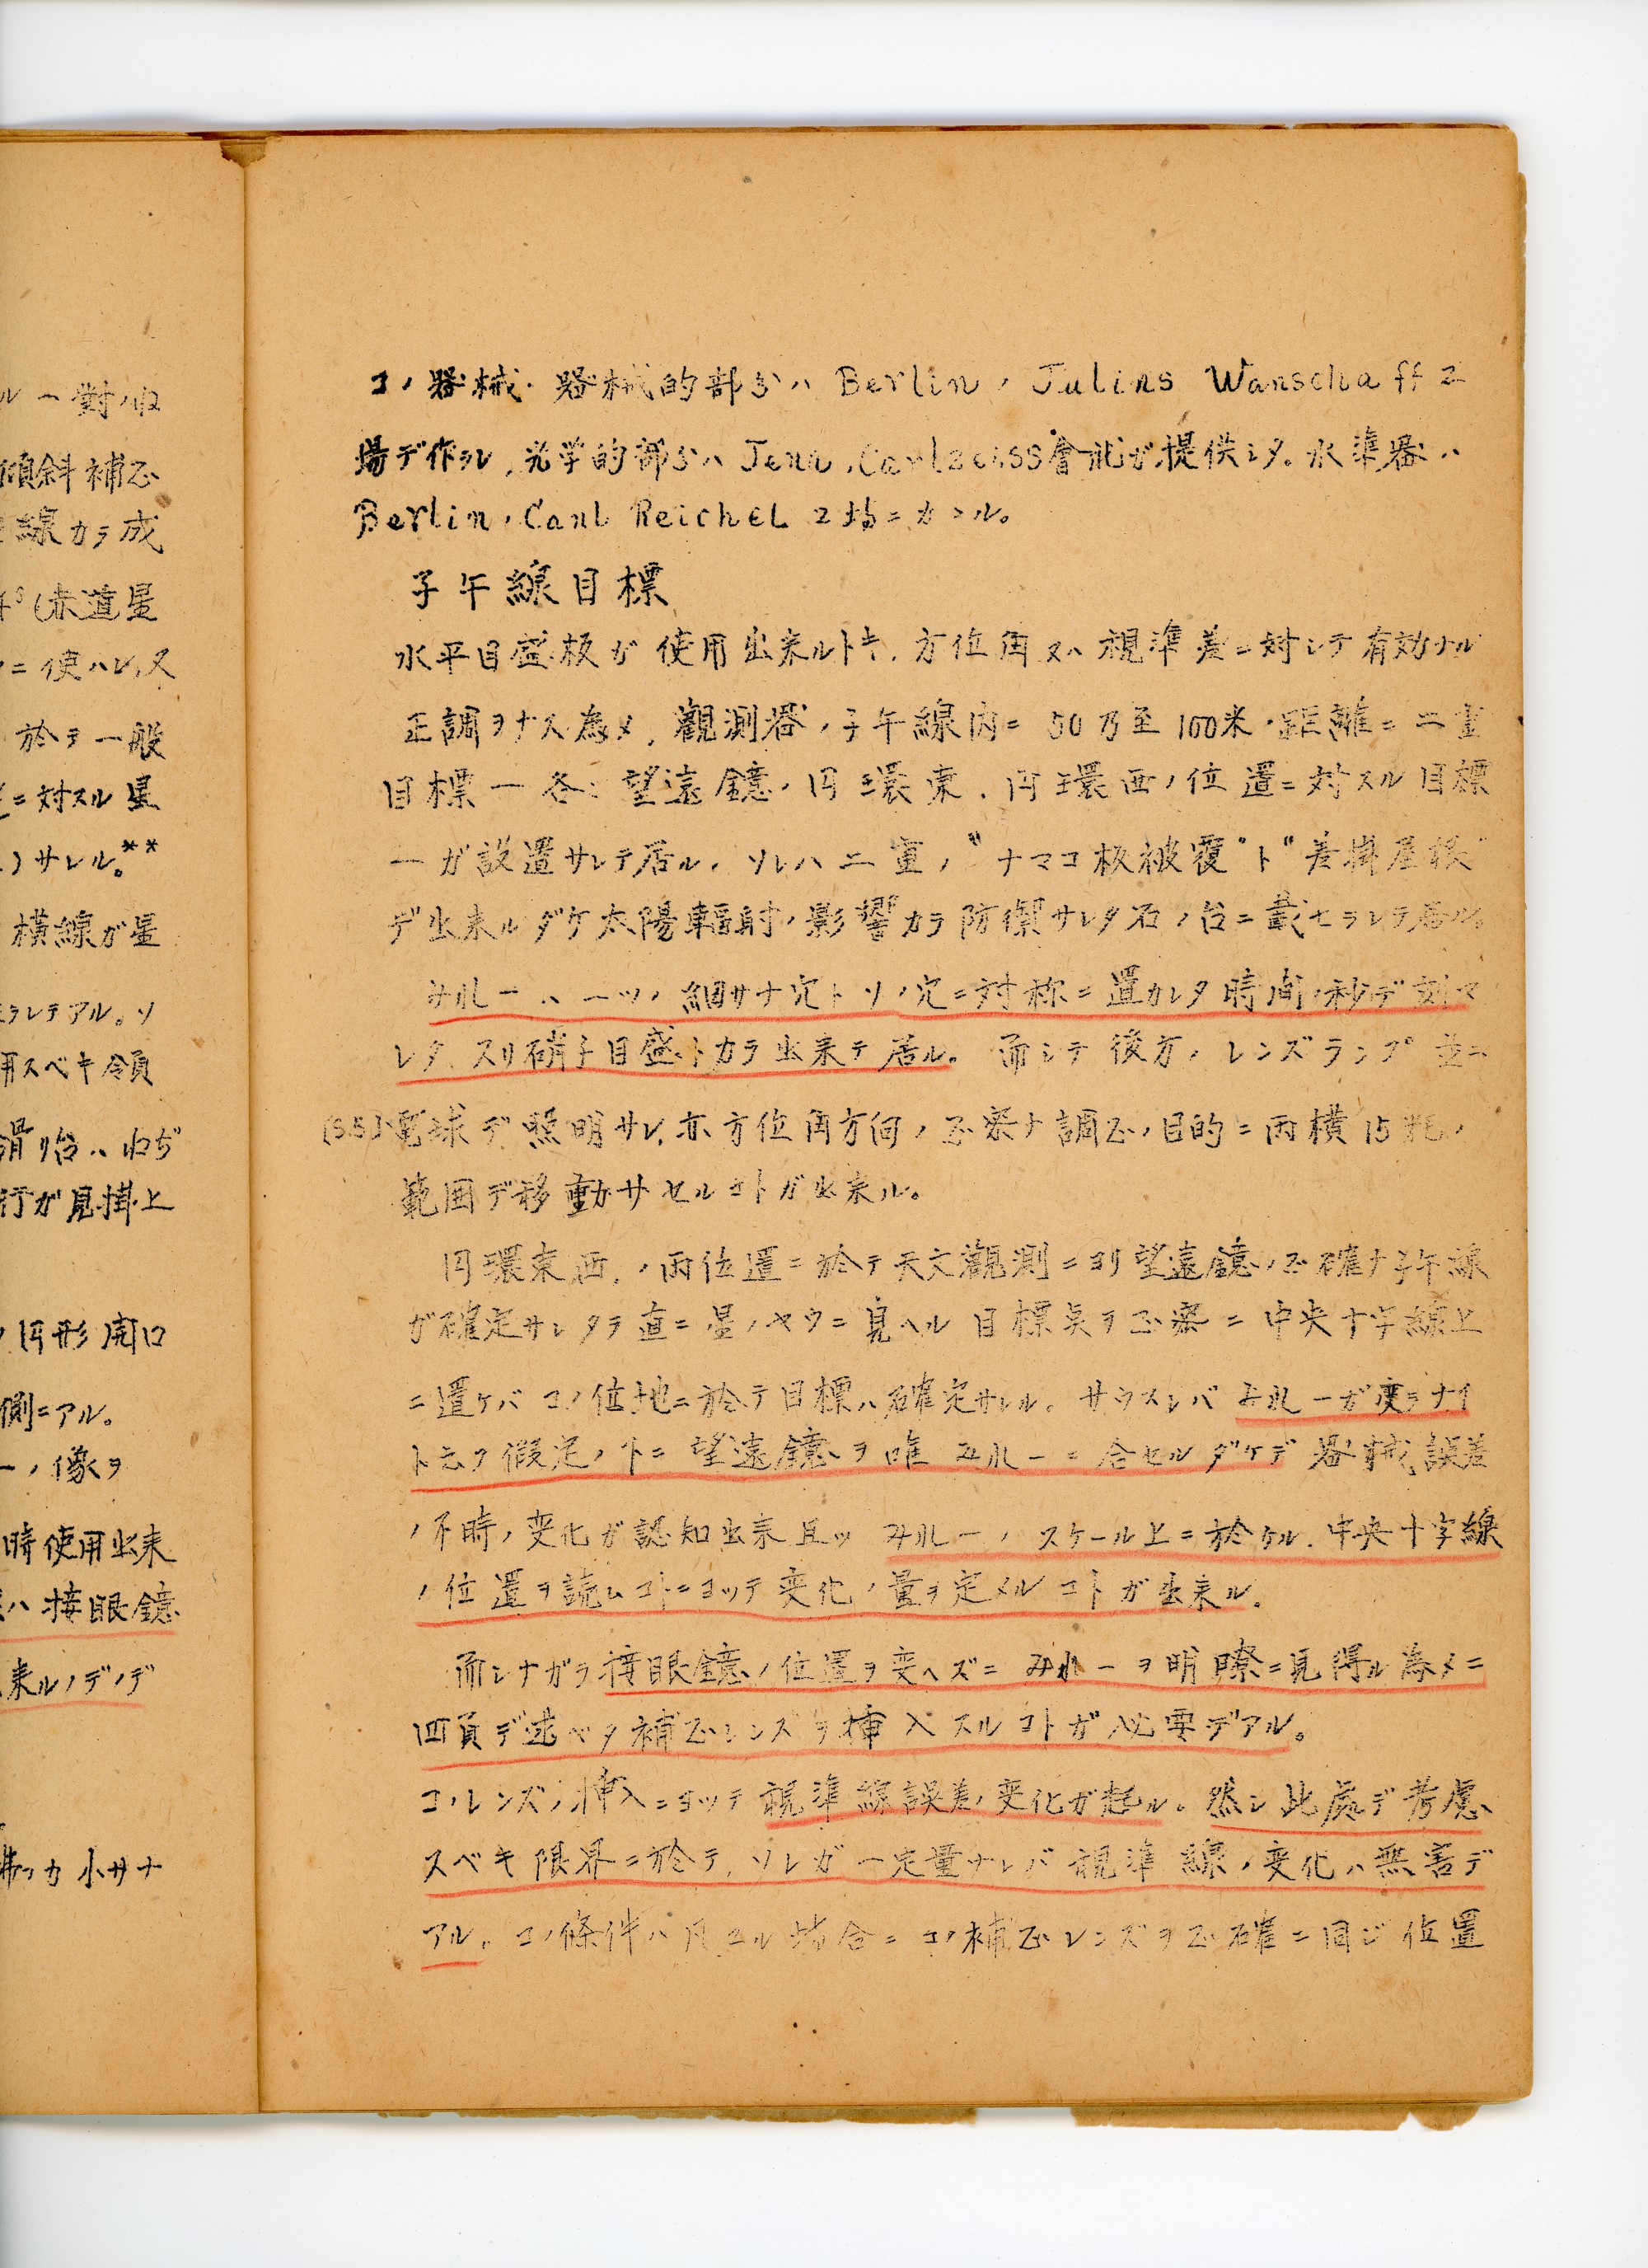 ル一對ノ収
傾斜補正
線カラ成
(赤道星
ニ使ハレ、又
於テ一般
ニ対スル星
サレル。**
横線ガ星
ラレテアル。ソ
用スベキ領
滑リ台ハねぢ
行ガ見掛上
円形開口
側ニアル。
ー、像ヲ
時使用出来
ハ接眼鏡
来ルノデノデ
カ小サナ
コノ器械ノ器械的部分ハ Berlin、Julins Wanschaff 工
場デ作ラレ、光学的部分ハ Jena、Carlzeiss會社ガ提供シタ。水準器ハ
Berlin、Carl Reichel 工場ニカゝル。
子午線目標
水平目盛板ガ使用出来ルトキ、方位角又ハ視準差ニ対シテ有効ナル
正調ヲナス為メ、觀測器ノ子午線内ニ 50乃至100米ノ距離ニ二重
目標 ― 各〻望遠鏡ノ円環東、円環西ノ位置ニ対スル目標
― ガ設置サレテ居ル。ソレハ二重ノ〝ナマコ板被覆〞ト〝差掛屋根〞
デ出来ルダケ太陽輻射ノ影響カラ防禦サレタ石ノ台ニ載セラレテ居ル。
みれーハ一ツノ細サナ穴トソノ穴ニ対称ニ置カレタ時間ノ秒デ刻マ
レタスリ硝子目盛トカラ出来テ居ル。而シテ後方ノレンズランプ並ニ
(S.5)電球デ照明サレ、亦方位角方向ノ正密ナ調正ノ目的ニ両横15粍ノ
範囲デ移動サセルコトガ出来ル。
円環東西、ノ両位置ニ於テ天文觀測ニヨリ望遠鏡ノ正確ナ子午線
ガ確定サレタラ直ニ星ノヤウニ見ヘル目標点ヲ正密ニ中央十字線上
ニ置ケバコノ位地ニ於テ目標ハ確定サレル。サウスレバみれーガ変ラナイ
ト云フ假定ノ下ニ望遠鏡ヲ唯みれーニ合セルダケデ器械誤差
ノ不時ノ変化ガ認知出来且ツみれーノスケール上ニ於ケル中央十字線
ノ位置ヲ読ムコトニヨッテ変化ノ量ヲ定メルコトガ出来ル。
而シナガラ接眼鏡ノ位置ヲ変ヘズニみれーヲ明瞭ニ見得ル為メニ
四頁デ述ベタ補正レンズヲ挿入スルコトガ必要デアル。
コノレンズノ挿入ニヨッテ視準線誤差ノ変化ガ起ル。然シ此處デ考慮
スベキ限界ニ於テ、ソレガ一定量ナレバ視準線ノ変化ハ無害デ
アル。コノ條件ハ凡ユル場合ニコノ補正レンズヲ正確ニ同ジ位置